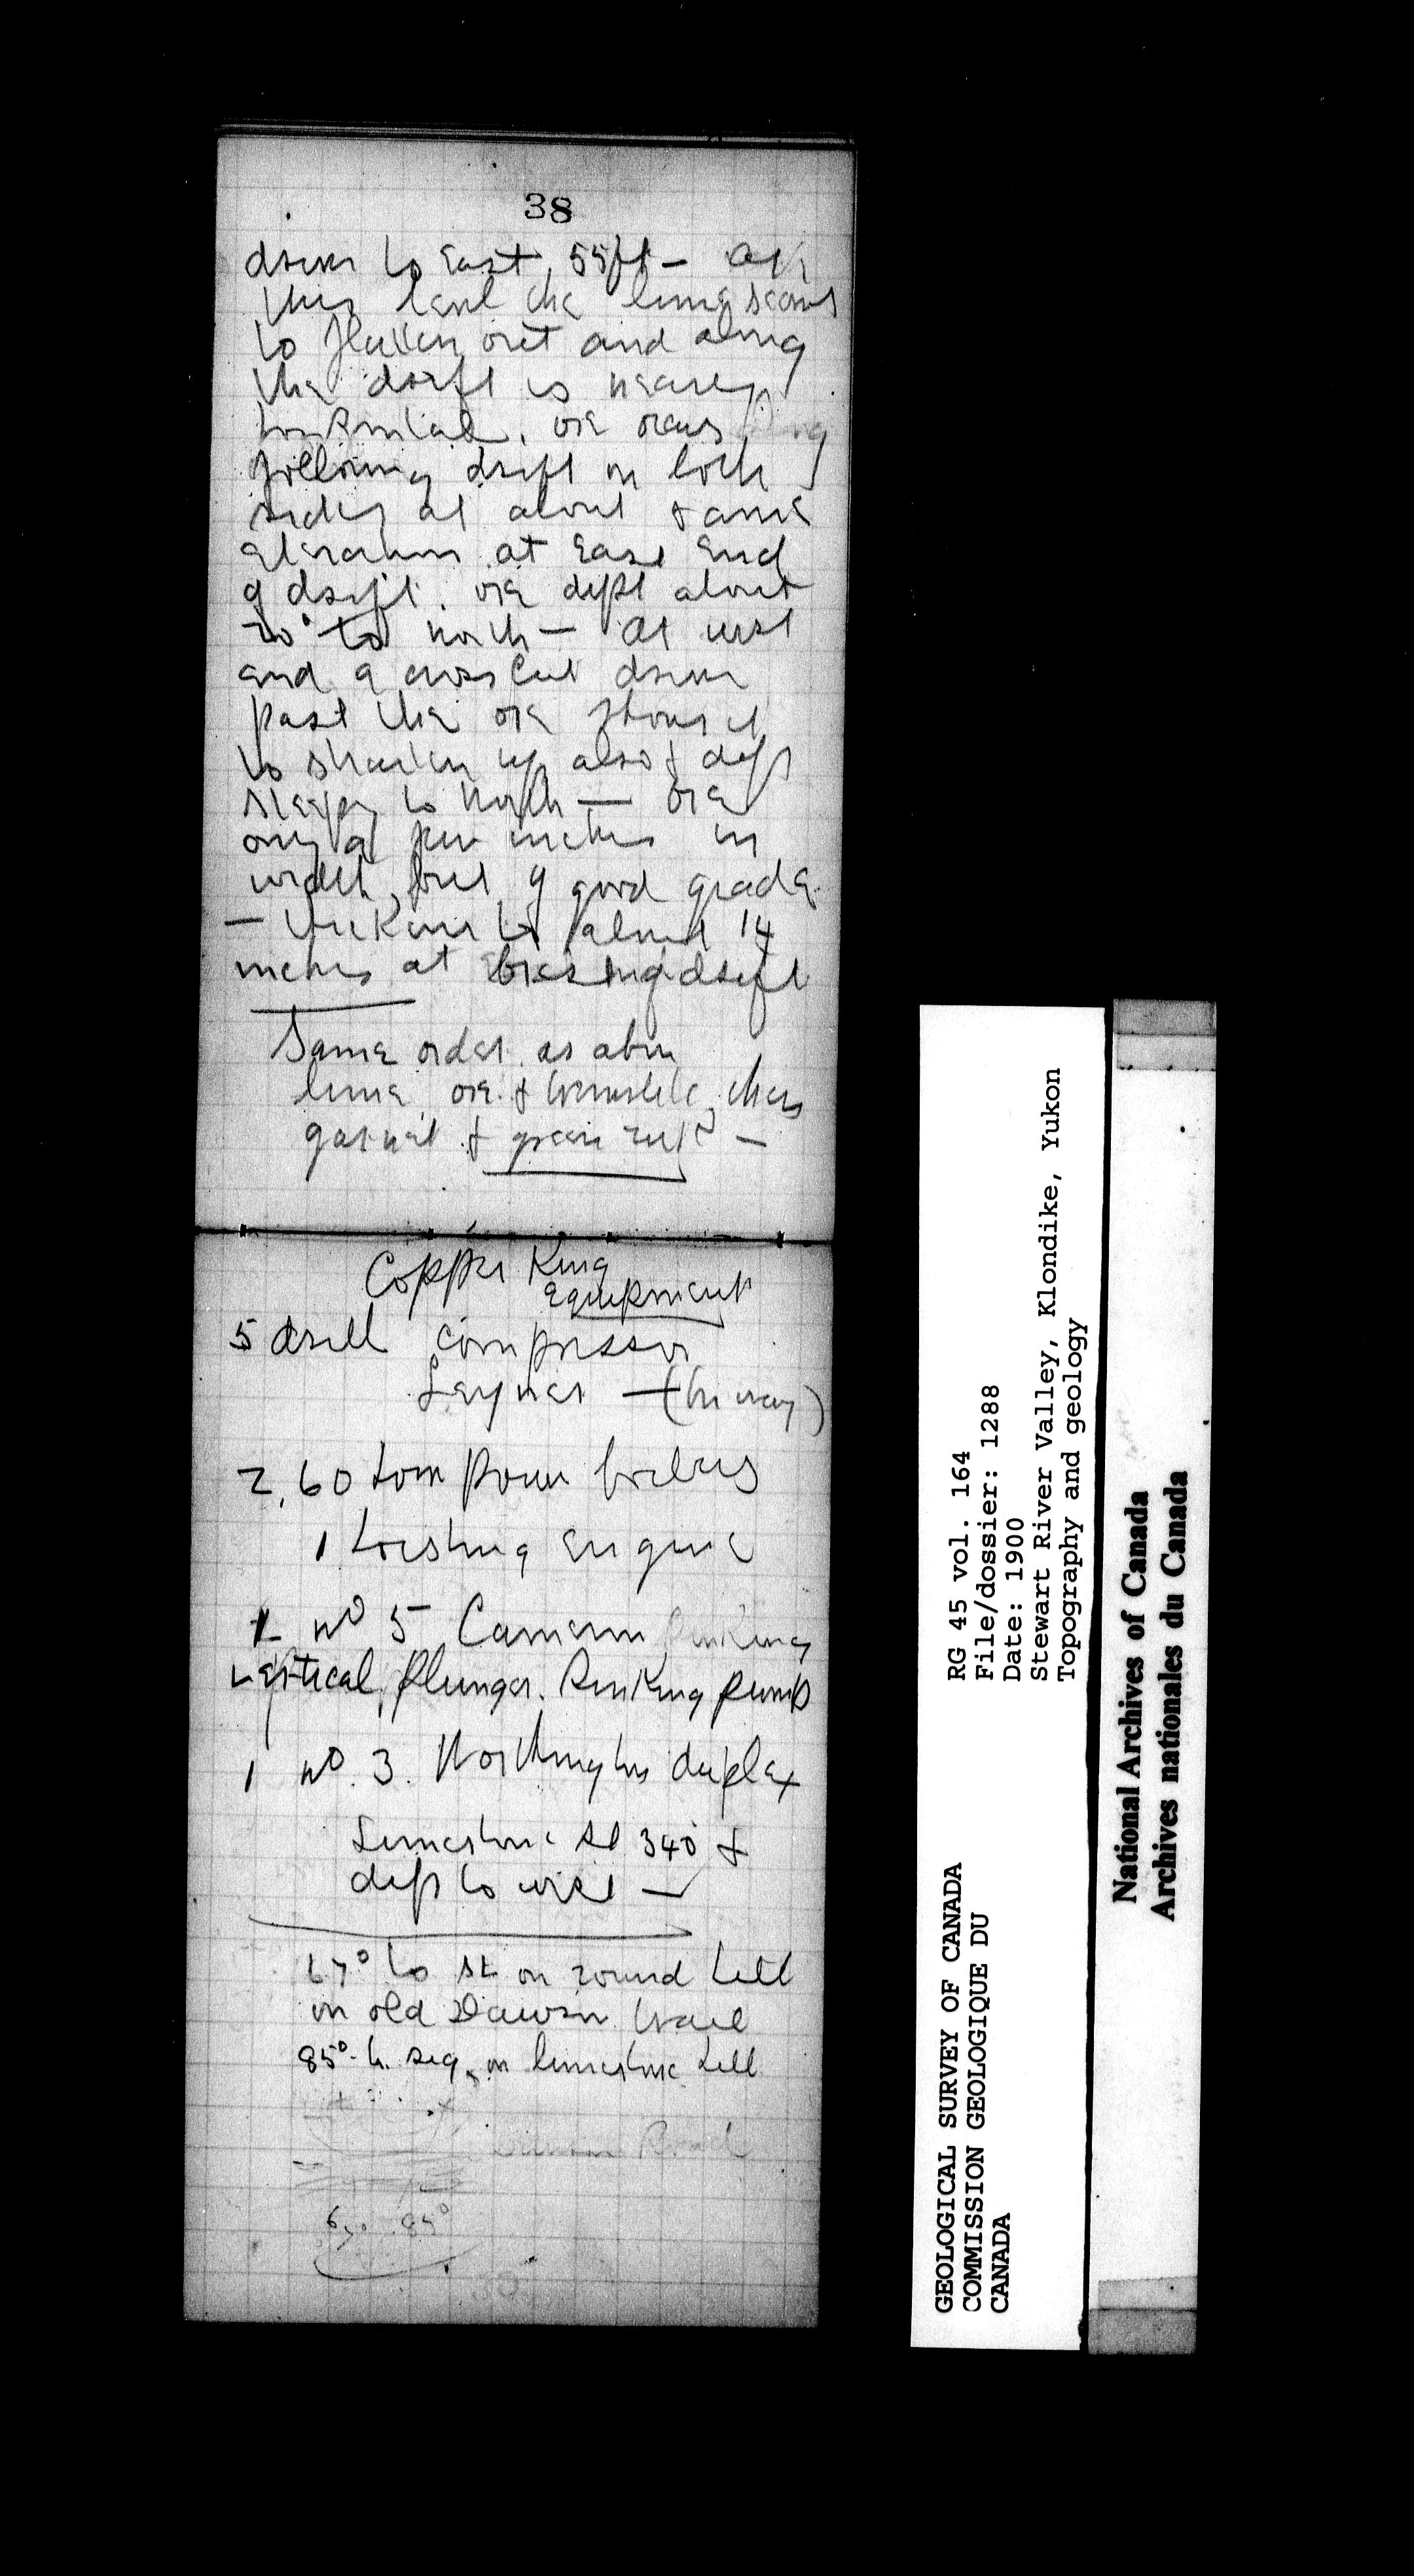 38
driven to East, 55ft — at
this level the lime seems
to flatten out and along
the drift is nearly
horizontal, ore occurs
following drift on both
sides at about same
elevation at East end
of drift. ore dips about
20° to north — at west
end a cross cut driven
past the ore shows it
to straighten up also & dips
steeply to North — ore
only a few inches in
width but of good grade
— thickens to about 14
inches at drift
Same order as above
lime ore & tremolite, then
garnet & green
Copper King
Equipment
5 drill compressor
Leyner — (in way)
2, 60 horse power boilers
1 hoisting engine
1 No 5 Cameron sinking
vertical, plunger. sinking pump
1 No. 3. Worthington duplex
Limestone St 340 &
dips to west —
67° to st on round hill
on old Dawson trail
85° to sig on limestone hill
Road
67° 85°
GEOLOGICAL SURVEY OF CANADA
COMMISSION GEOLOGIQUE DU
CANADA
RG 45 vol. 164
File/dossier: 1288
Date: 1900
Stewart River Valley, Klondike, Yukon
Topography and geology
National Archives of Canada
Archives nationales du Canada